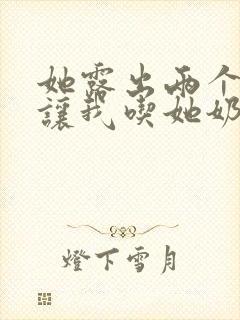 她露出兩个
讓我喫她奶
燈下雪月